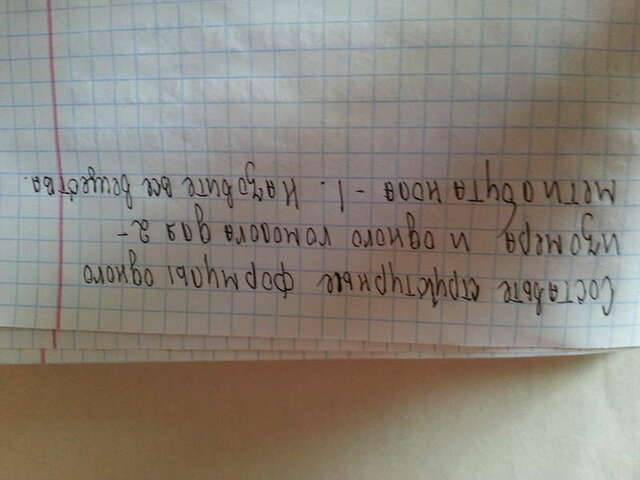 Составьте структурные формулы одного
изомера и одного гомолога для 2-
метилбутанола -1. Назовите все вещества.